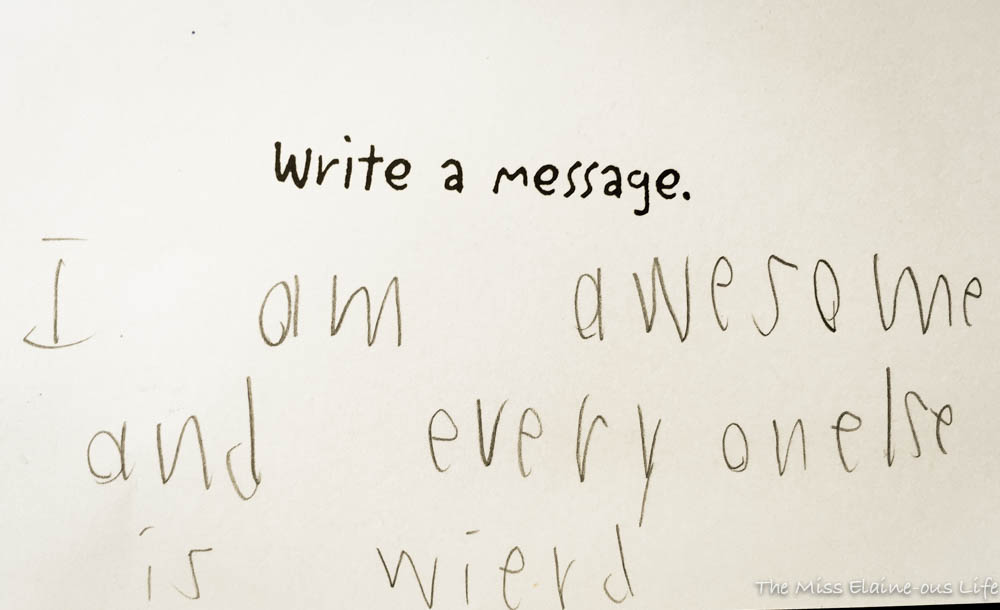 Write a message.
I am awesome
and every onelse
is wierd
The Miss Elaine-ous Life